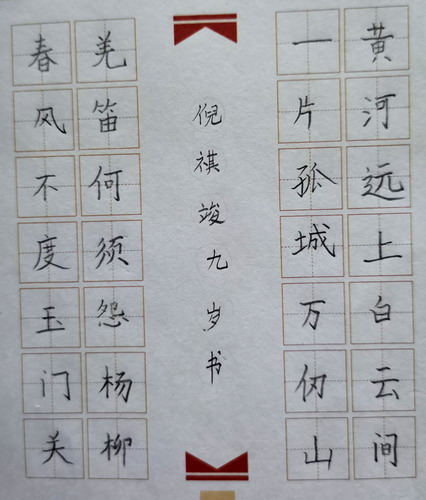 黄河远上白云间
一片孤城万仞山
倪祺竣九岁书
羌笛何须怨杨柳
春风不度玉门关